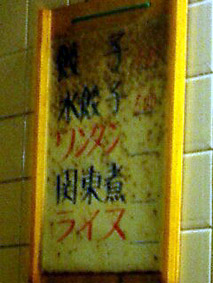 餃子
水餃子
ワンタン
関東煮
ライス